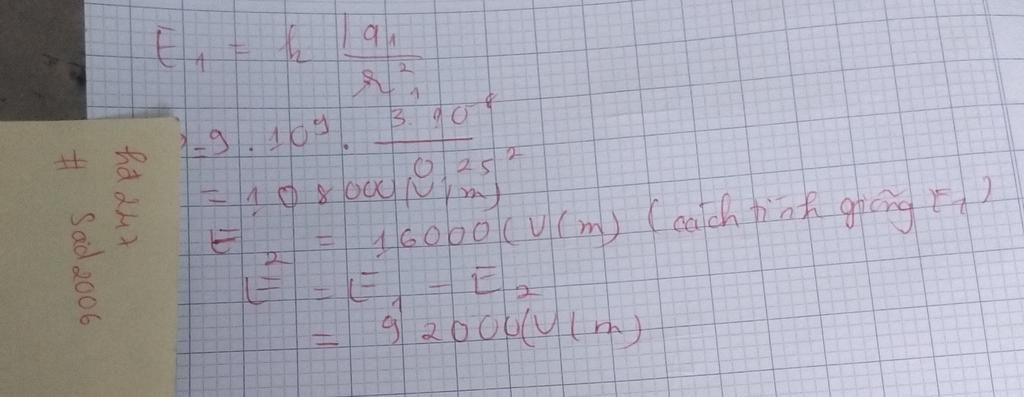 E₁ = k |q₁ / r₁²
= 9 . 10⁹ . 3. 10⁻⁸ / 0,25²
= 108000(V/m)
E₂ = 16000(V/m) (cách tính giống E₁)
E = E₁ - E₂
= 92000(V/m)
hd 247
# Sad 2006